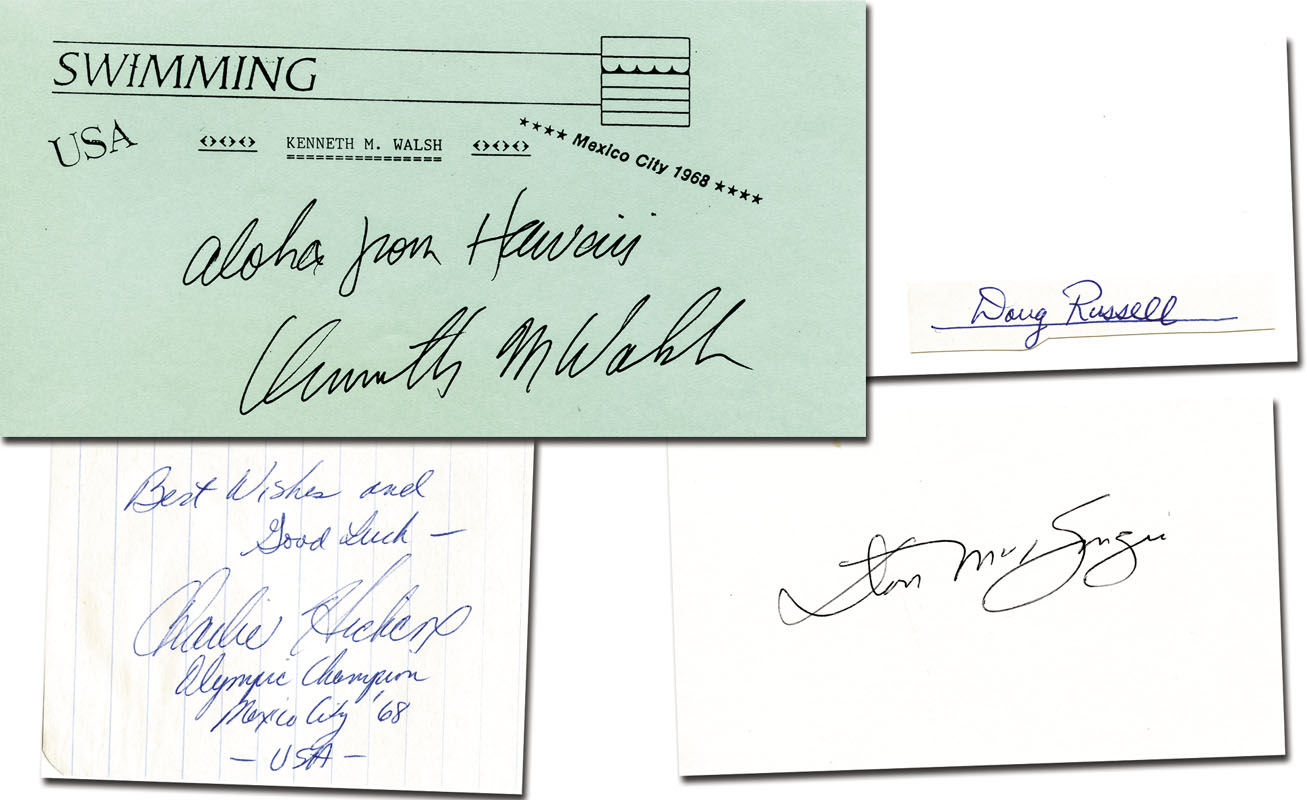 SWIMMING
USA
KENNETH M. WALSH
**** Mexico City 1968 ****
aloha from Hawaii
Kenneth M Walsh
Doug Russell
Best Wishes and
Good Luck —
Charlie Hickcox
Olympic Champion
Mexico City '68
— USA —